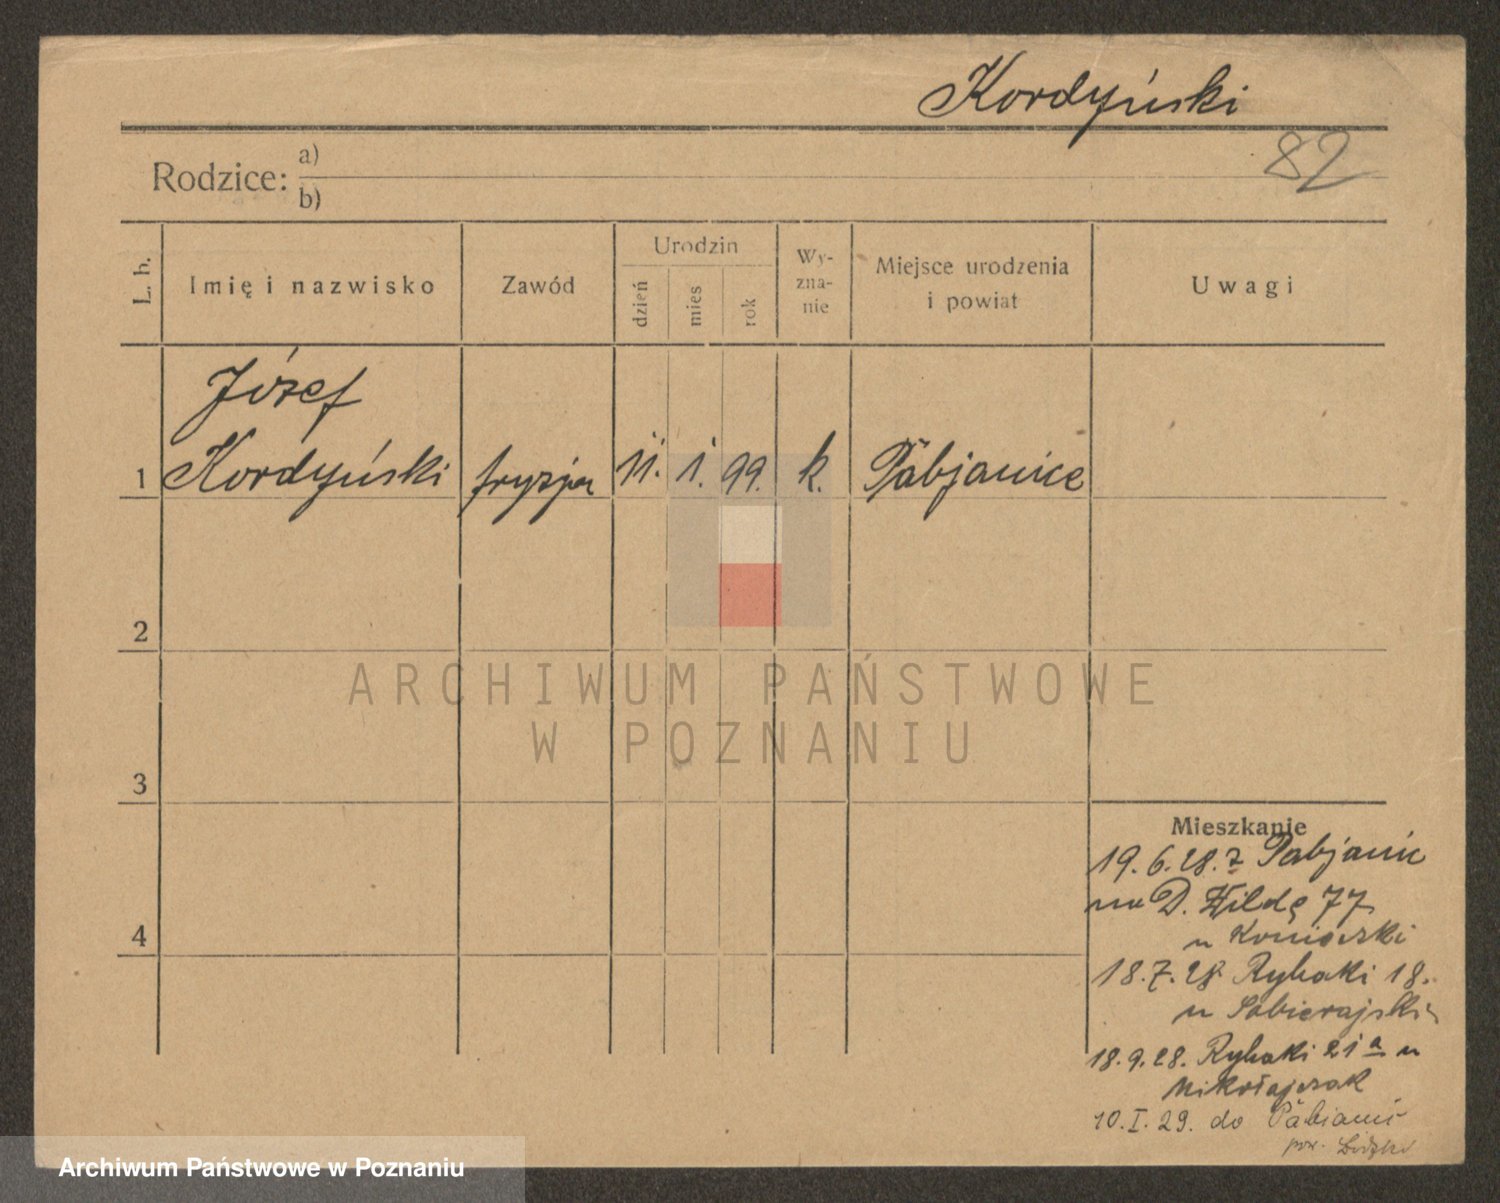 Kordyński
82
Rodzice: a)
b)
L. b.
Imię i nazwisko
Zawód
Urodzin
dzień
mies
rok
Wy-
zna-
nie
Miejsce urodzenia
i powiat
Uwagi
Józef
1 Kordyński fryzjer 11. 1. 99. k. Pabjanice
2
3
4
ARCHIWUM PAŃSTWOWE
W POZNANIU
Mieszkanie
19.6.28. z Pabjanic
na D. Wildę 77
u
18.7.28 Rybaki 18.
u Sobierajski
18.9.28. Rybaki 21a u
Mikołajczak
10.I.29. do Pabianic
pow.
Archiwum Państwowe w Poznaniu